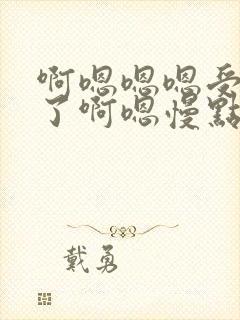 啊嗯嗯嗯受
了啊嗯慢點
戴勇